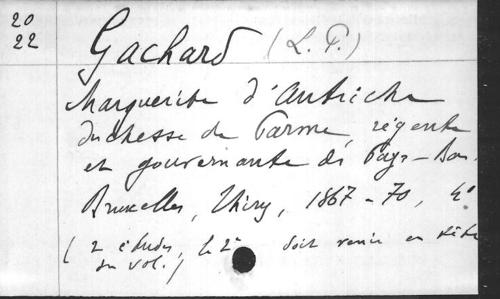 20
22
Gachard (L. P.)
Marguerite d'Autriche
duchesse de Parme, régente
et gouvernante des Pays-Bas.
Bruxelles, Thiry, 1867-70, 4°
(2 études, la 2e doit venir en tête
du vol.)